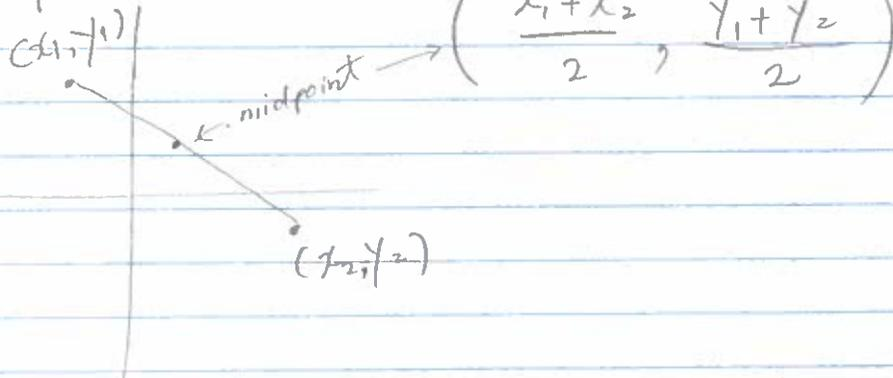 (x₁, y₁)
midpoint → ( x₁ + x₂ / 2 , y₁ + y₂ / 2 )
(x₂, y₂)